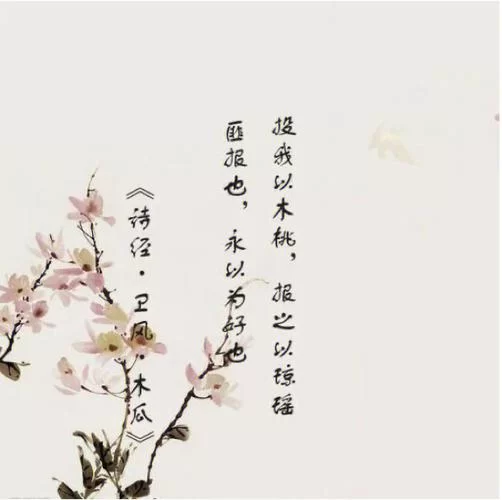 投我以木桃，报之以琼瑶
匪报也，永以为好也
《诗经·卫风·木瓜》